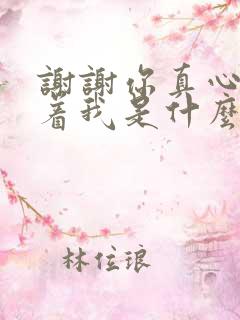 謝謝你真心
着我是什麼
林住琅